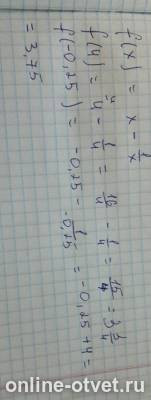 f(x) = x - 1/x
f(4) = 4 - 1/4 = 16/4 - 1/4 = 15/4 = 3 3/4
f(-0,25) = -0,25 - 1/-0,25 = -0,25 + 4 =
= 3,75
online-otvet.ru